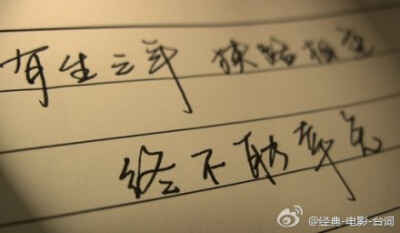 有生之年 狭路相逢
终不能幸免
@经典-电影-台词